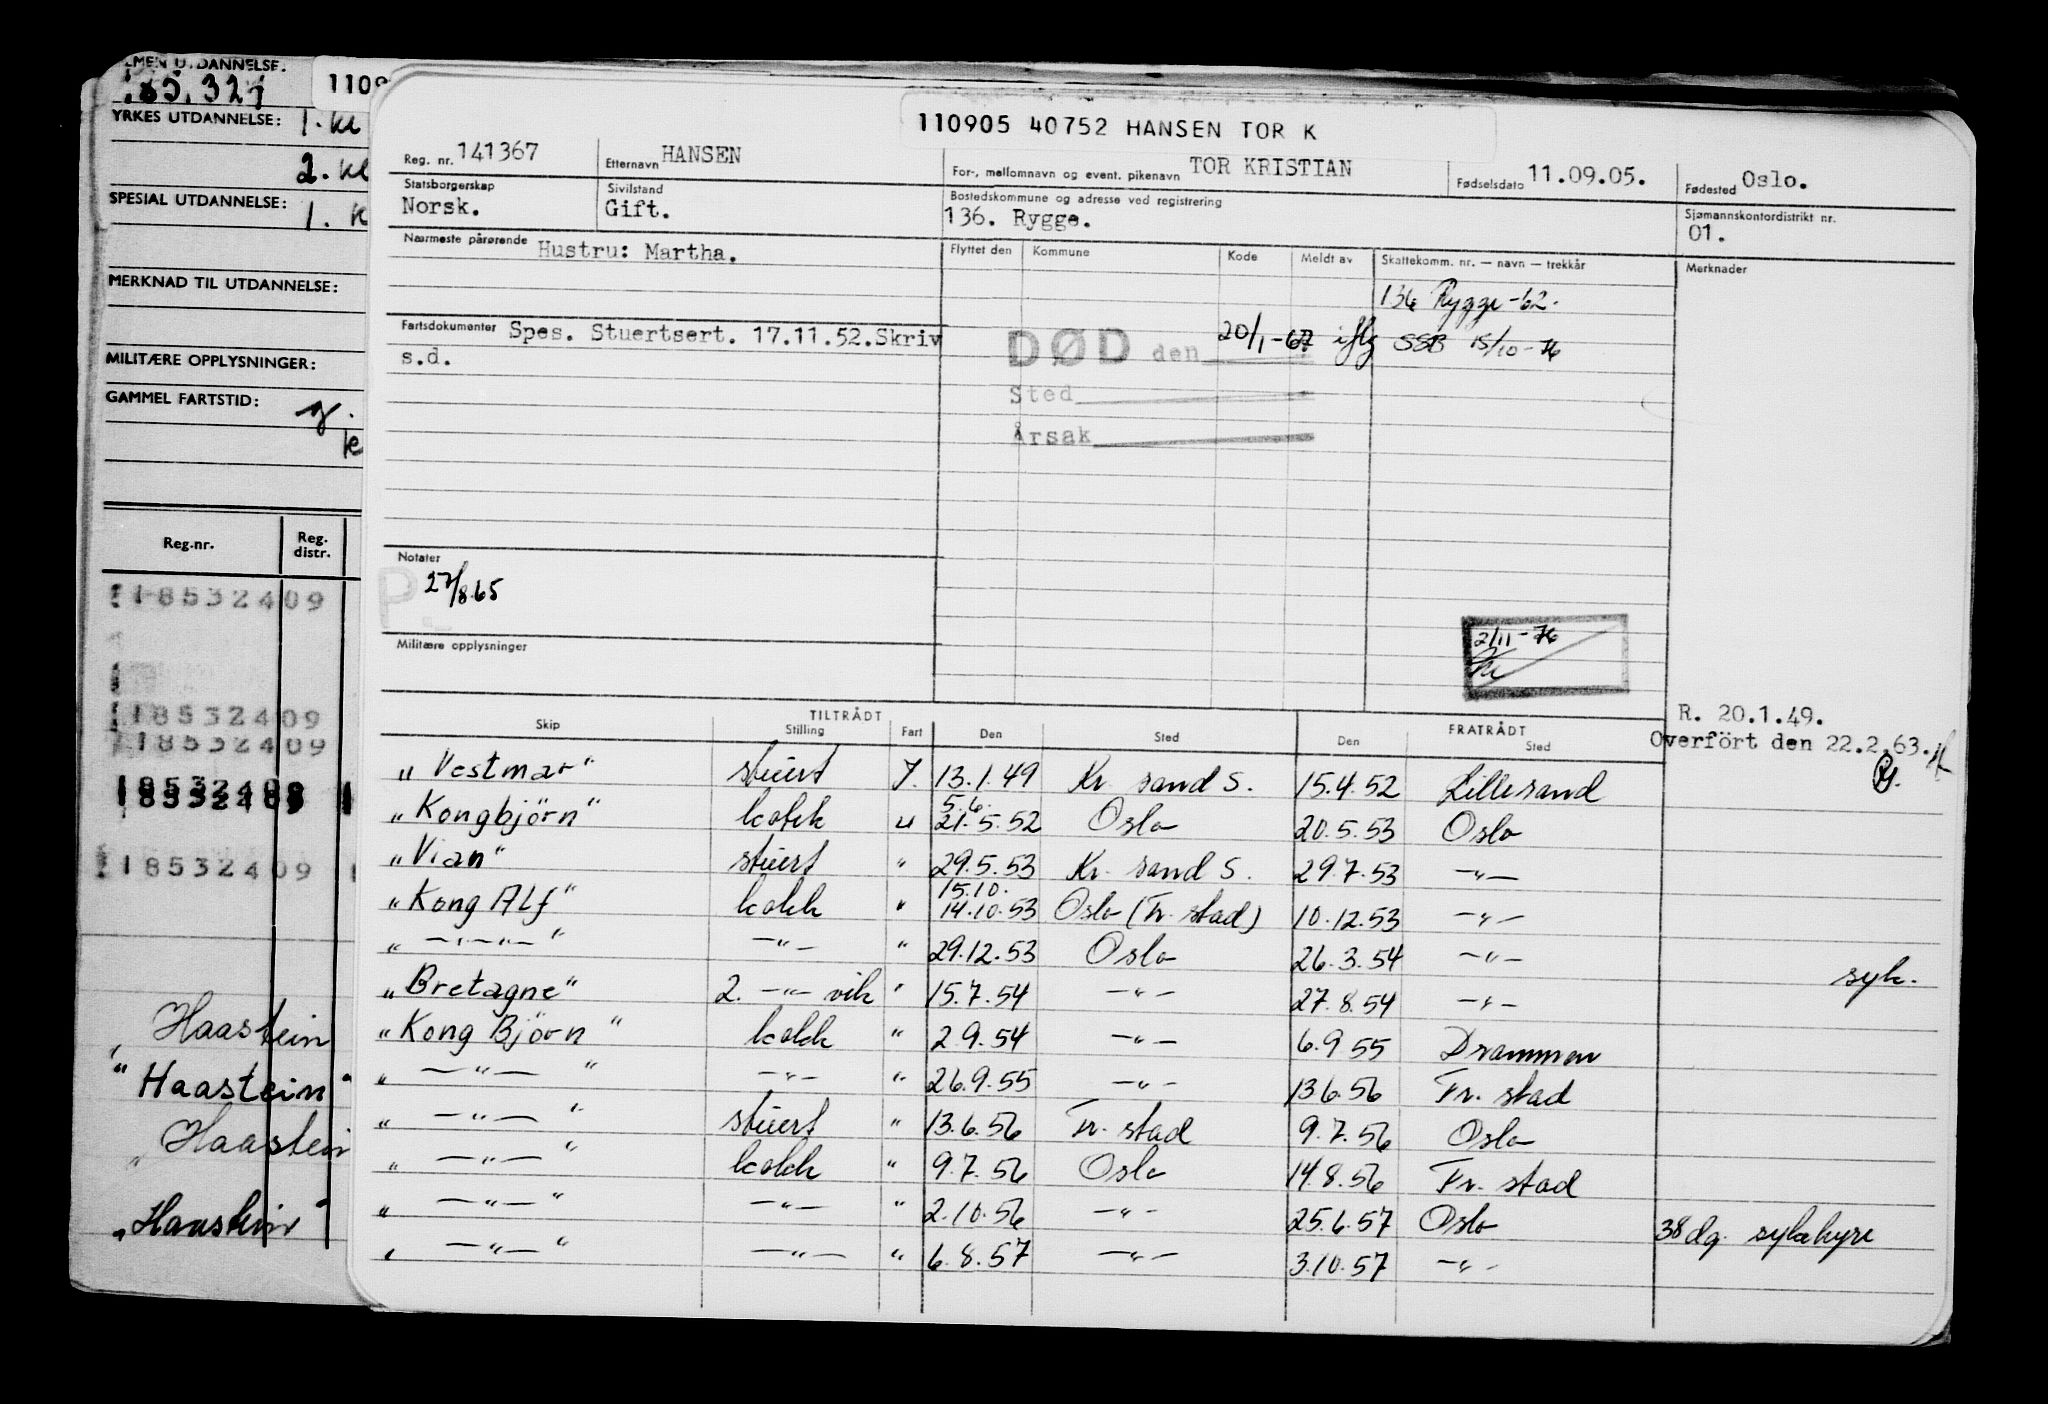 110905 40752 HANSEN TOR K
Reg. nr. 141367 Etternavn HANSEN For-, mellomnavn og event. pikenavn TOR KRISTIAN Fødselsdato 11.09.05. Fødested Oslo.
Statsborgerskap Norsk. Sivilstand Gift. Bostedskommune og adresse ved registrering 136. Rygge. Sjømannskontordistrikt nr. 01.
Nærmeste pårørende Hustru: Martha. Flyttet den Kommune Kode Meldt av Skattekomm. nr. — navn — trekkår Merknader
136 Rygge -62.
Fartsdokumenter Spes. Stuertsert. 17.11.52.Skriv
s.d.
DØD den 20/1-67 iflg SSB 15/10-76
Sted
Årsak
Notater
27/8.65
Militære opplysninger
2/11-76
R. 20.1.49.
Overfört den 22.2.63.
TILTRÅDT FRATRÅDT
Skip Stilling Fart Den Sted Den Sted
"Vestmar" stuert 7. 13.1.49 Kr. sand S. 15.4.52 Lillesand
5.6.
"Kongbjörn" kokk " 21.5.52 Oslo 20.5.53 Oslo
"Vian" stuert " 29.5.53 Kr. sand S. 29.7.53 —"—
15.10.
"Kong Alf" kokk " 14.10.53 Oslo (Fr. stad) 10.12.53 —"—
" —"—"— " —"— " 29.12.53 Oslo 26.3.54 —"— syk.
"Bretagne" 2. —"— vik " 15.7.54 —"— 27.8.54 —"—
"Kong Björn" kokk " 2.9.54 —"— 6.9 55 Drammen
" —"— " —"— " 26.9.55 —"— 13.6.56 Fr. stad
" —"— " stuert " 13.6.56 Fr. stad 9.7.56 Oslo
" —"— " kokk " 9.7.56 Oslo 14.8.56 Fr. stad
" —"— " —"— " 2.10.56 —"— 25.6.57 Oslo 38 dg. sykehyre
" —"— " —"— " 6.8.57 —"— 3.10.57 —"—
UTDANNELSE:
1109
YRKES UTDANNELSE: 1. kl
2. kl
SPESIAL UTDANNELSE: 1. k
MERKNAD TIL UTDANNELSE:
MILITÆRE OPPLYSNINGER:
GAMMEL FARTSTID:
Reg.nr. Reg. distr.
18532409
18532409
18532409
18532409
18532409
Haastein
"Haastein"
Haastein
"Haastein"